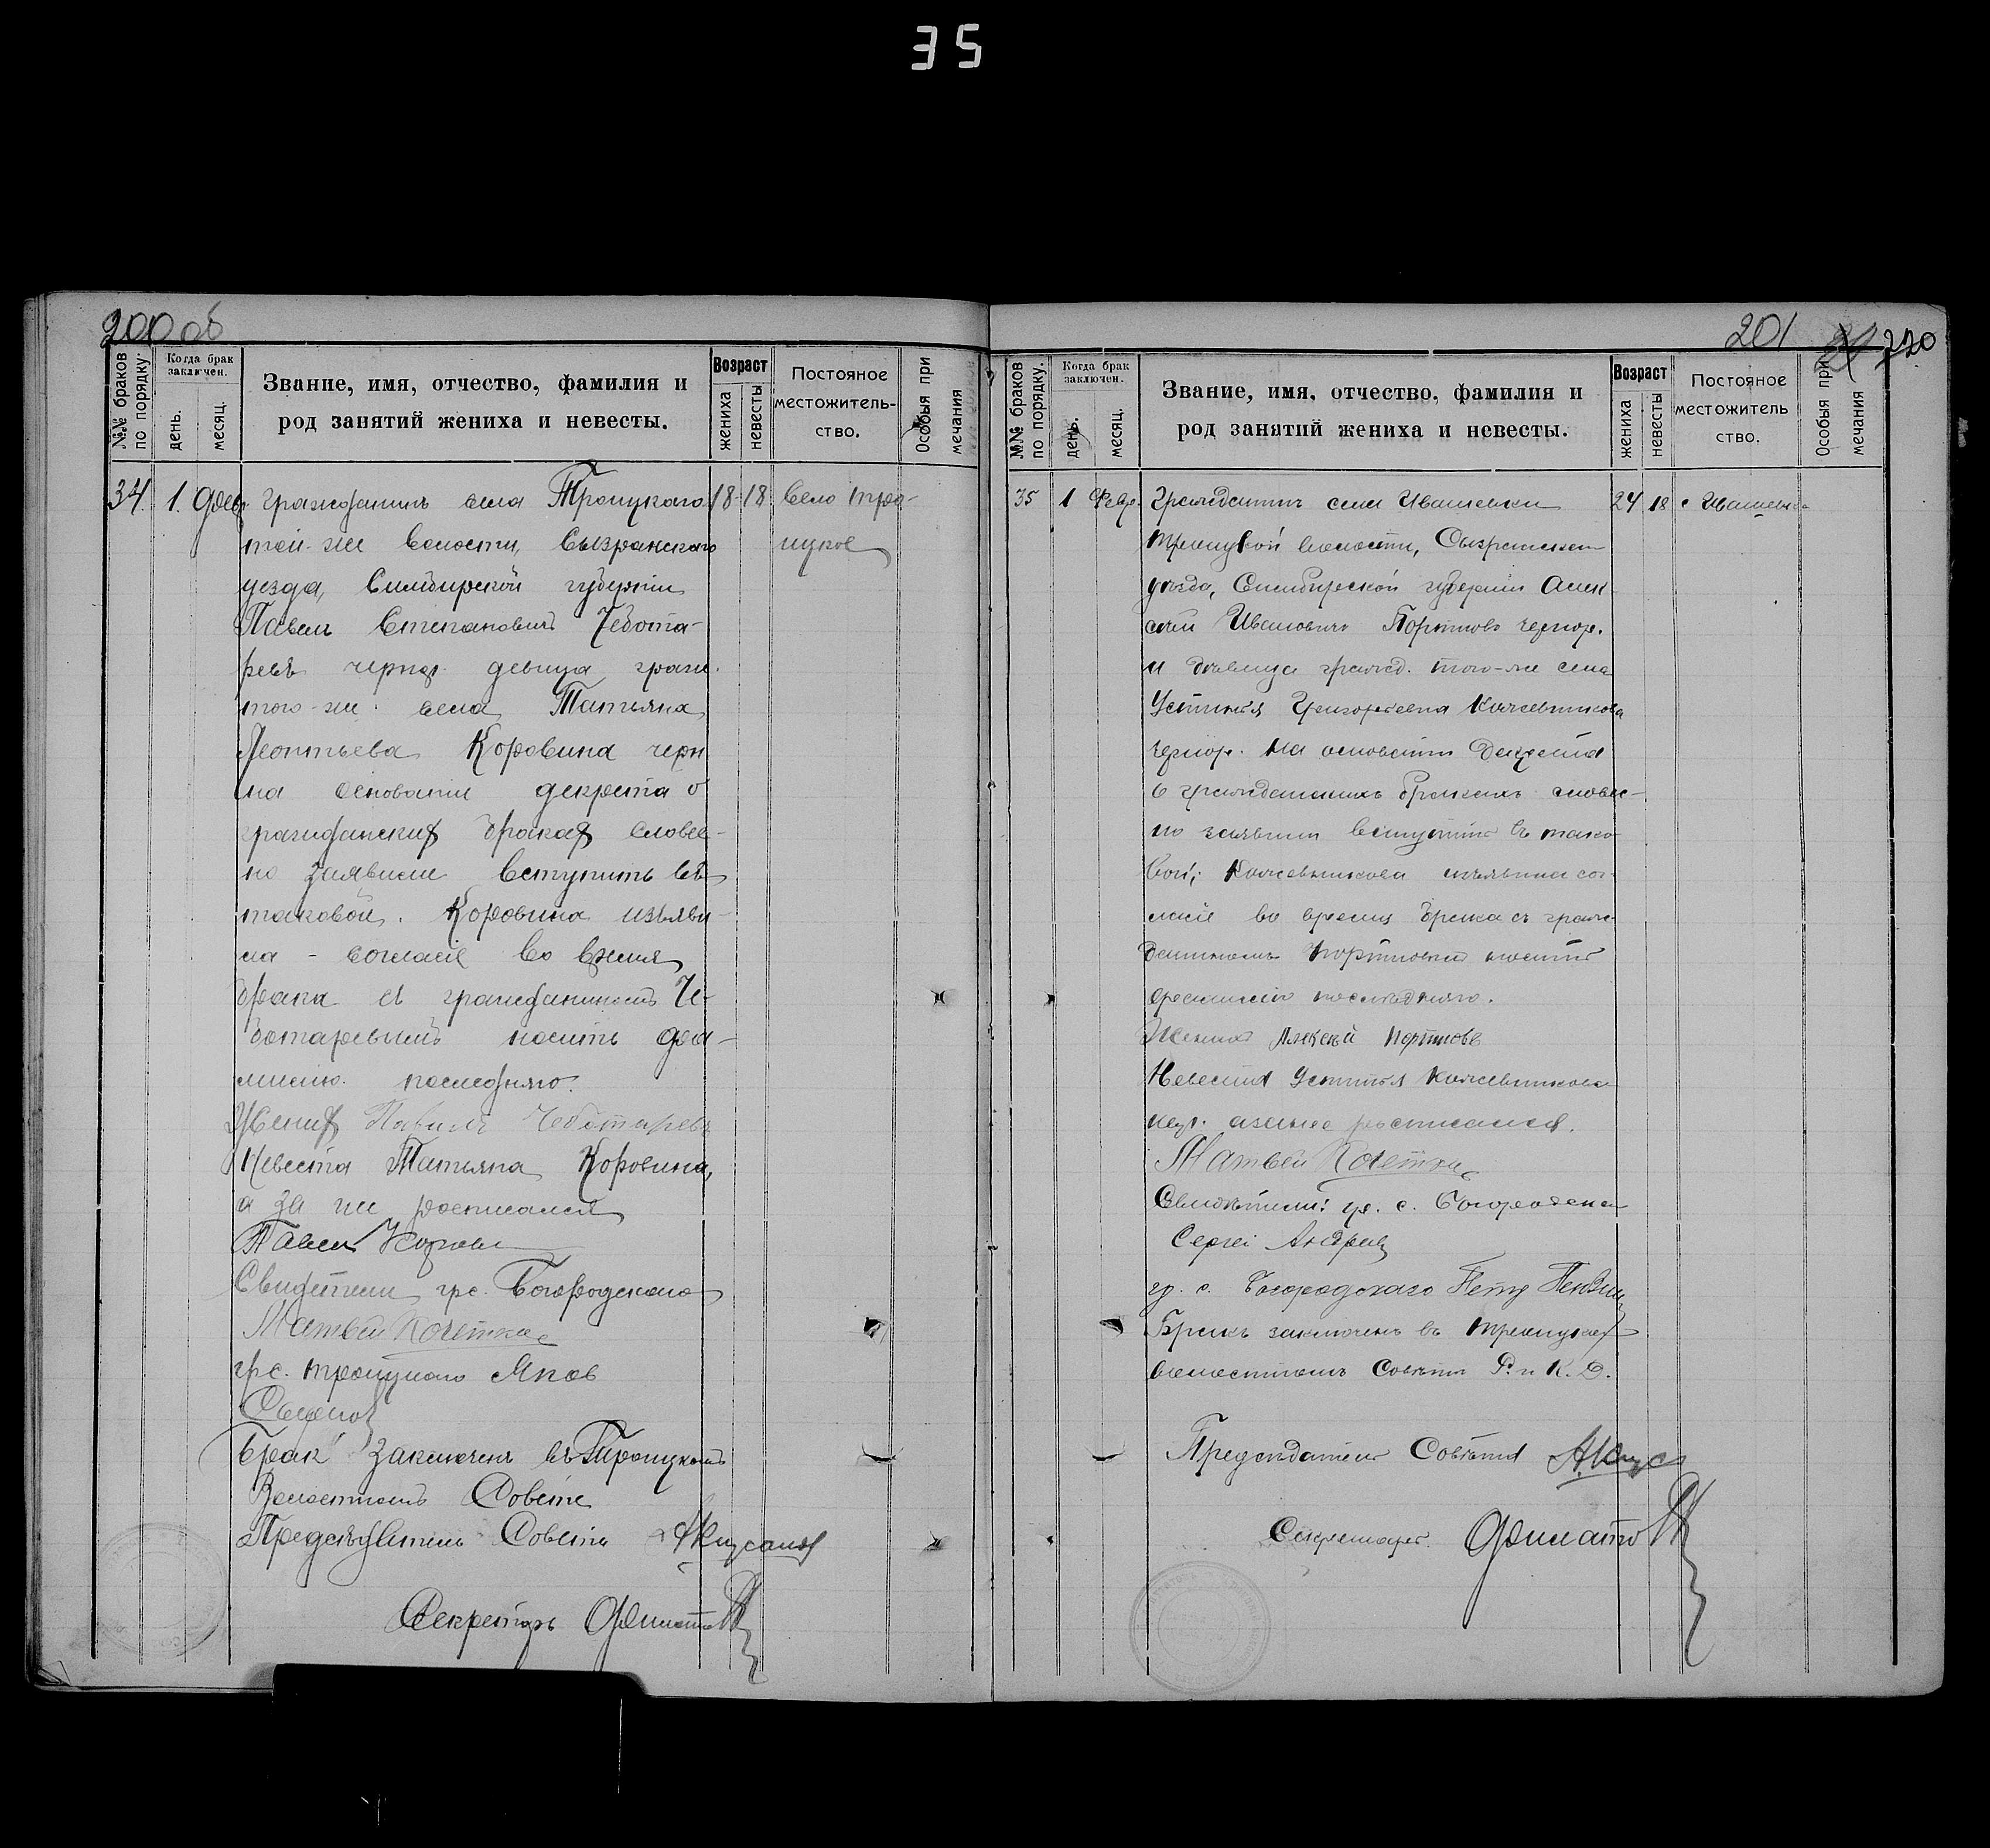 35
200 об
№№ браков по порядку.
Когда брак заключен.
день.
месяц.
Звание, имя, отчество, фамилия и
род занятий жениха и невесты.
Возраст
жениха
невесты
Постояное
местожитель-
ство.
Особыя при
мечания
34. 1. Февр. Гражданинъ села Троицкаго 18 18 Село Трои-
той-же волости, Сызранскаго цкое
уезда, Симбирской губернiи
Павелъ Степановичъ Чебота-
ревъ чернор. девица граж.
того-же села Татьяна
Леонтьева Коровина черн
на основанiи декрета о
гражданских браках словес-
но заявили вступить въ
таковой. Коровина изъяви-
ла - согласiе во время
брака съ гражданиномъ Че-
ботаревымъ носить фа-
милiю последняго.
Жених Павилъ Чеботаревъ
Невеста Татьяна Коровина,
а за нее росписался
Павел
Свидетели гр. с. Богородскаго
Матвей Кочетков
гр. с. Троицкаго Яков
Брак заключенъ въ Троицкомъ
Волостномъ Совете
Председатель Совета
Секретарь
201
220
№№ браков по порядку.
Когда брак заключен.
день.
месяц.
Звание, имя, отчество, фамилия и
род занятий жениха и невесты.
Возраст
жениха
невесты
Постояное
местожитель
ство.
Особыя при
мечания
35 1 Февр. Гражданинъ села Ивашевки 24 18 с Ивашевка
Троицкой волости, Сызранскаго
уѣзда, Симбирской губернiи Алек-
сѣй Ивановичъ Портновъ чернор.
и дѣвица гражд. того-же села
Устинья Григорьевна Кожевникова
чернор. на основанiи Декрета
о гражданскихъ бракахъ словес-
но заявили вступить въ тако-
вой; Кожевникова изъявила сог-
ласiе во время брака съ граж-
даниномъ Портновым носить
фамилiю послѣдняго.
Женихъ Алексѣй Портновъ
Невеста Устинья Кожевникова
негр. а за нее росписался.
Матвей Кочетков
Свидѣтели: гр. с. Богородска
Сергеi Андреев
гр. с. Богородскаго Петр
Бракъ заключенъ въ Троицком
волостномъ Совѣтѣ Р. и К. Д.
Предсѣдатель Совѣта
Секретарь.